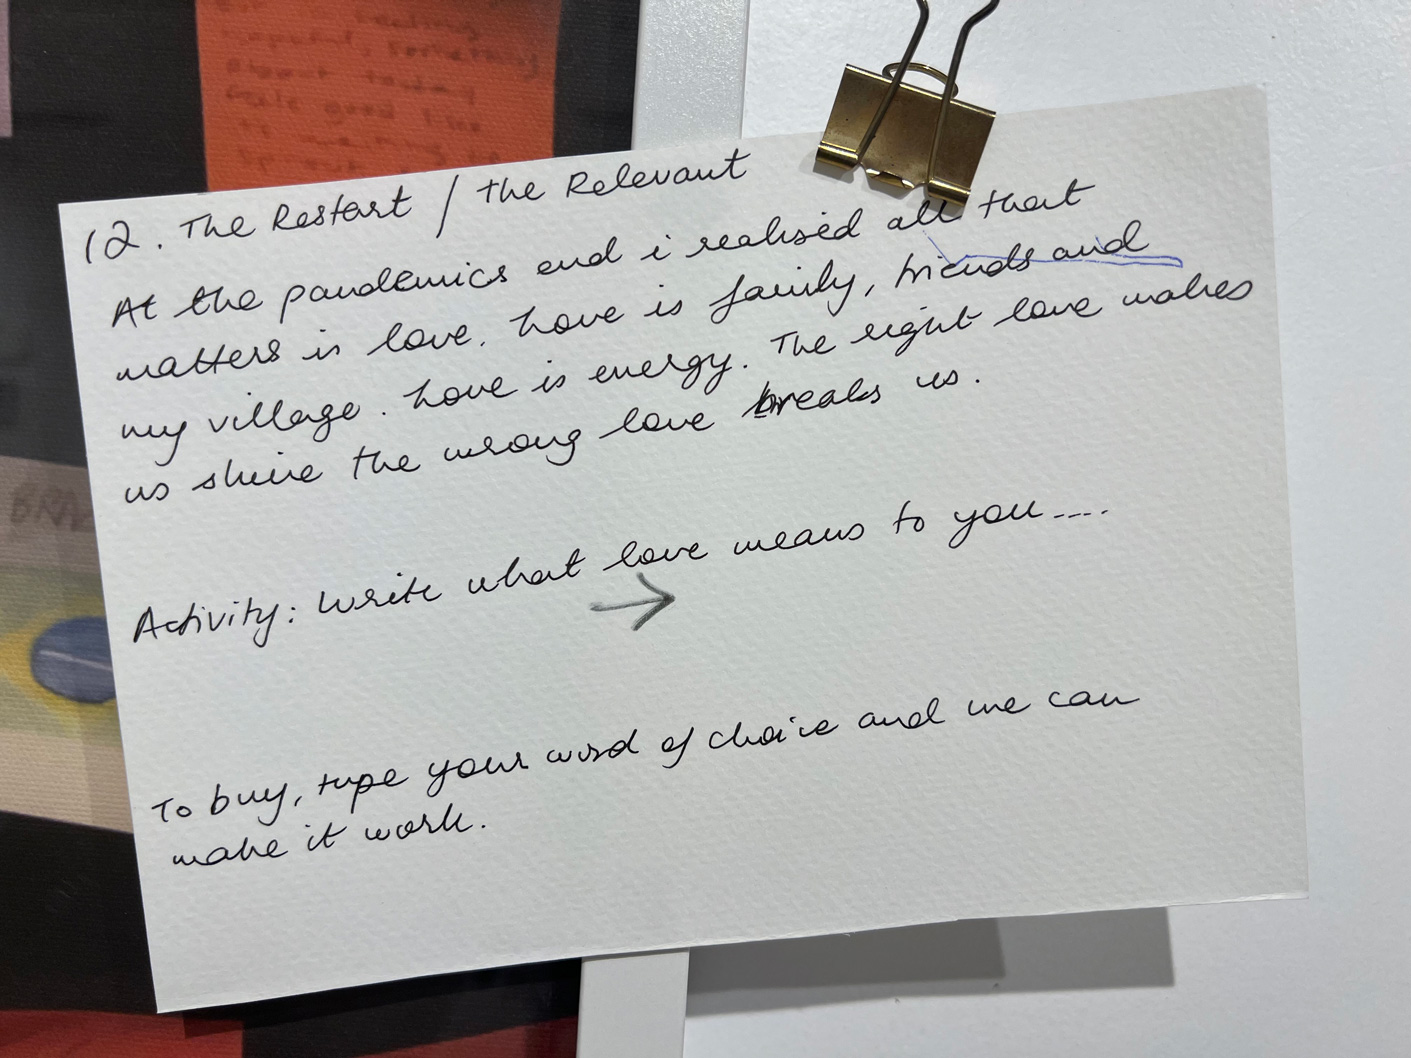 But im feeling
hopeful, something
about today
feels good like
BRAZ
12. The Restart / The Relevant
At the pandemics end i realised all that
matters is love. Love is family, friends and
my village. Love is energy. The right love makes
us shine the wrong love breaks us.
Activity: Write what love means to you....
→
To buy, type your word of choice and we can
make it work.